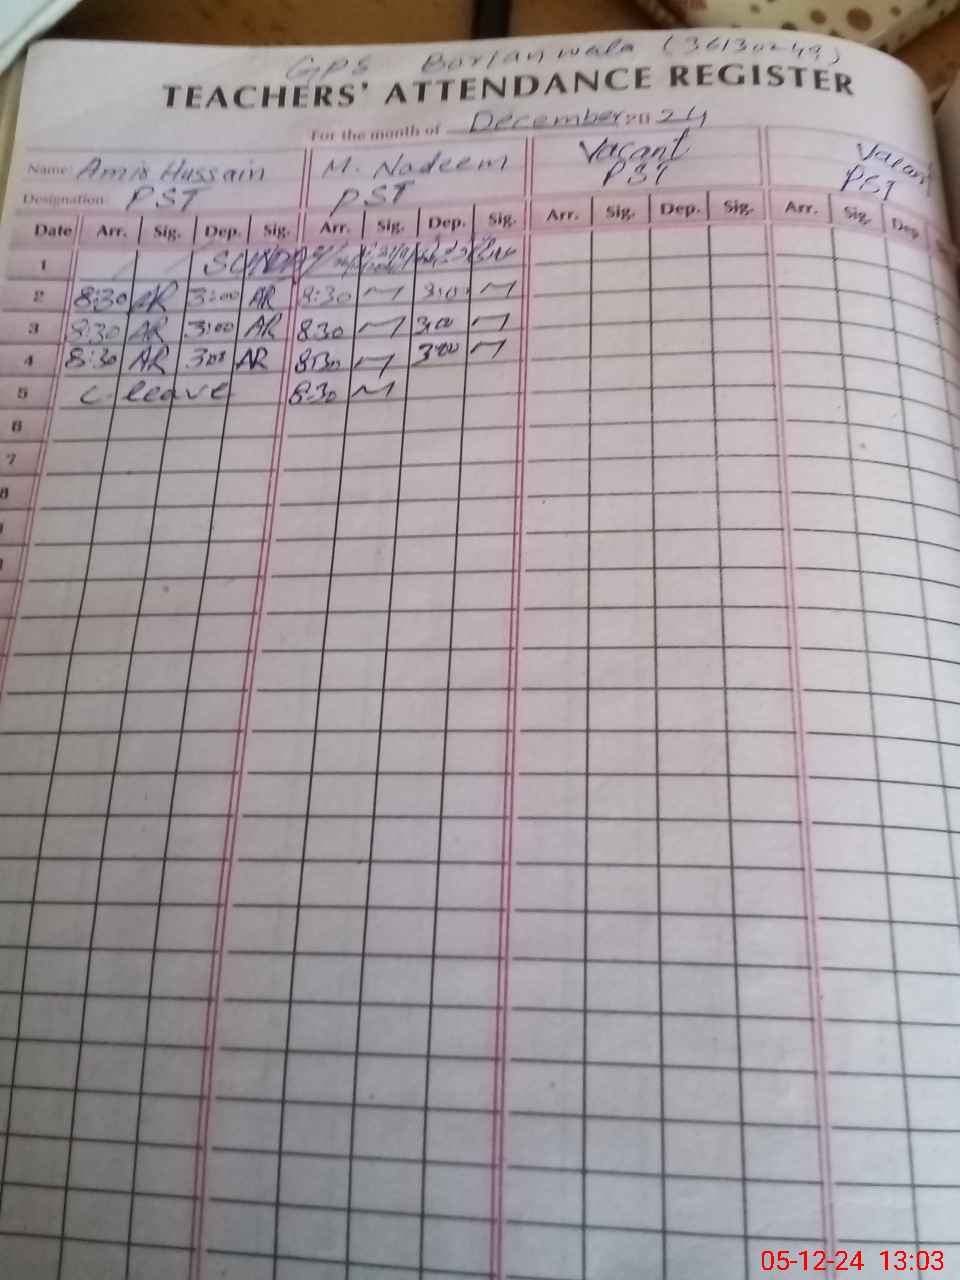 GPS Borianwala (36130249)
TEACHERS' ATTENDANCE REGISTER
For the month of December 20 24
Name: Amir Hussain M. Nadeem Vacant Vacant
Designation: PST PST PST PST
Date Arr. Sig. Dep. Sig. Arr. Sig. Dep. Sig. Arr. Sig. Dep. Sig. Arr. Sig. Dep.
1 SUNDAY
2 8:30 AR 3:00 AR 8:30 3:00
3 8:30 AR 3:00 AR 8:30 3:00
4 8:30 AR 3:00 AR 8:30 3:00
5 C. leave 8:30
6
7
8
05-12-24 13:03